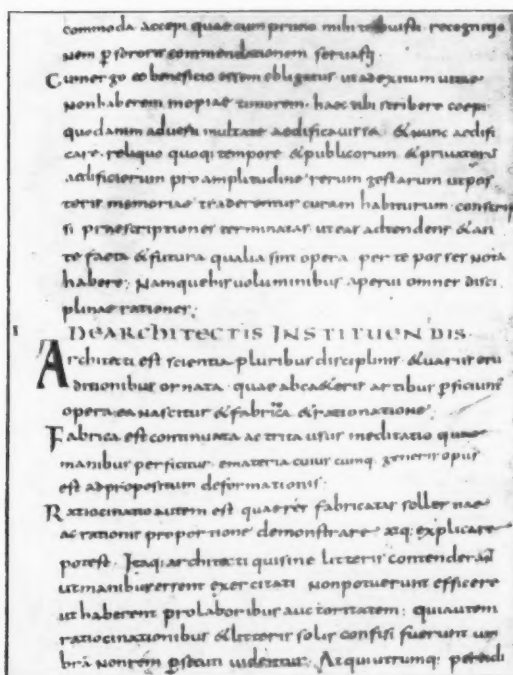 commoda accepi quae cum primo mihi tribuisti recognitio
nem p sororis commendationem servasti
Cum ergo eo beneficio essem obligatus ut ad exitum uitae
non haberem inopiae timorem haec tibi scribere coepi
quod animadverti multa te aedificauisse & nunc aedifi
care reliquo quoq; tempore & publicorum & privatorū
aedificiorum pro amplitudine rerum gestarum ut pos
teris memoriae traderentur curam habiturum conscrip
si praescriptiones terminatas ut eas adtendens & an
te facta & futura qualia sint opera per te posses nota
habere; Namque his uoluminibus aperui omnes disci
plinae rationes;
I DE ARCHITECTIS INSTITUENDIS
Architecti est scientia pluribus disciplinis & uariis eru
ditionibus ornata quae ab ca&eris artibus pficiunt
opera ea nascitur & fabrica & rationatione
Fabrica est continuata ac trita usus meditatio quae
manibus perficitur e materia cuius cumq; generis opus
est ad propositum deformationis
Ratiocinatio autem est quae res fabricatas sollertiae
ac rationis proportione demonstrare atq; explicare
potest Itaq; architecti qui sine litteris contenderant
ut manibus essent exercitati non potuerunt efficere
ut haberent pro laboribus auctoritatem; qui autem
ratiocinationibus & litteris solis confisi fuerunt um
brā non rem psecuti uidentur At qui utrumq; perdidi